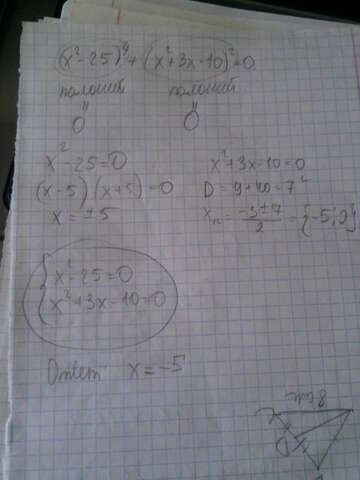 (x²-25)⁴+(x²+3x-10)²=0
положит положит
= =
0 0
x²-25=0
(x-5)(x+5)=0
x=±5
x²+3x-10=0
D=9+40=7²
xₙ=(-3±7)/2={-5;2}
{x²-25=0
x²+3x-10=0
Ответ x=-5
8 см
D